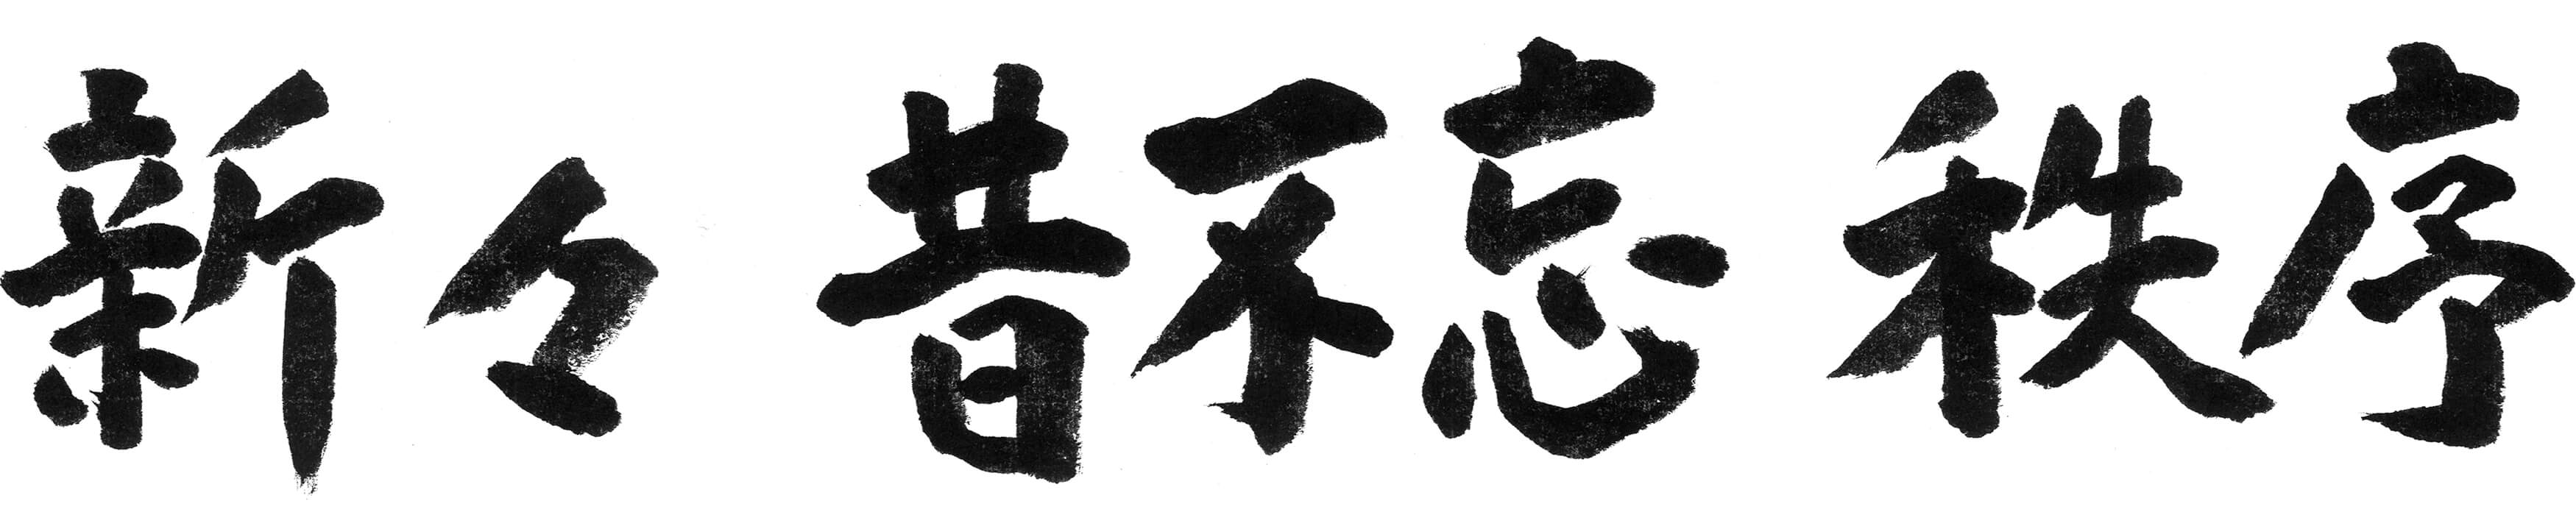 新々 昔不忘 秩序